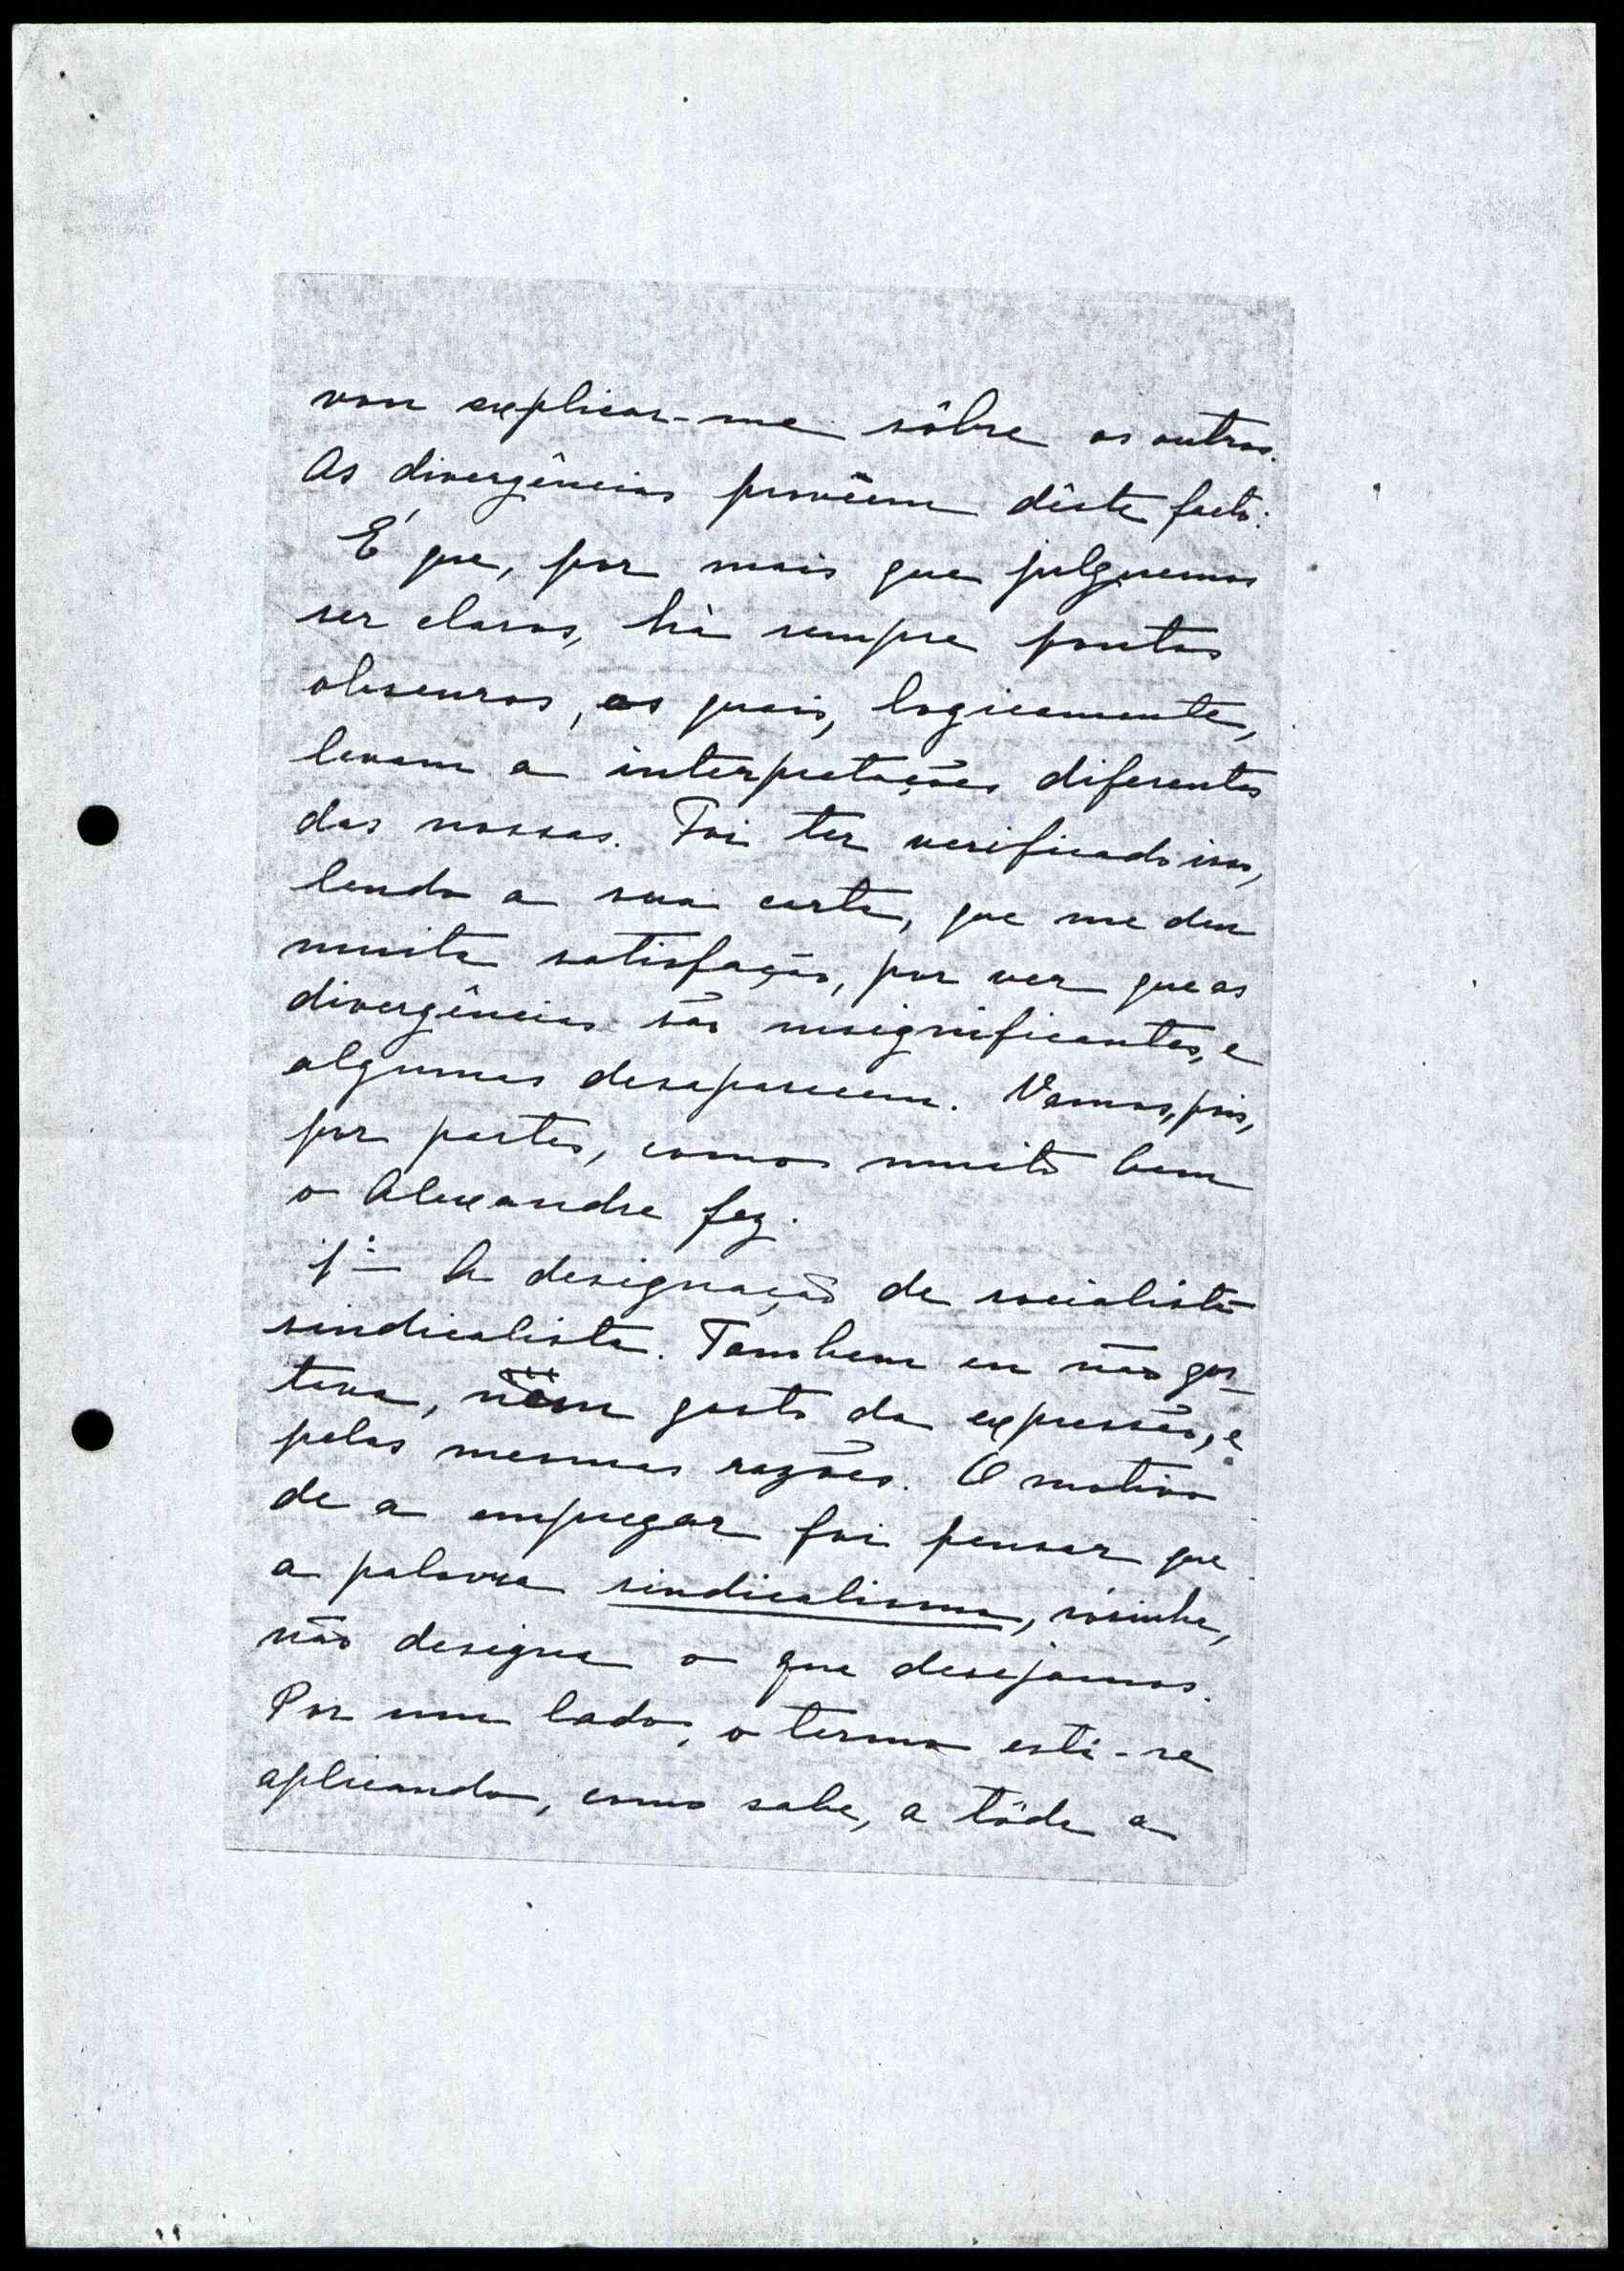 vou explicar-me sôbre os outros.
As divergências provêem dêste facto:
É que, por mais que julguemos
ser claros, há sempre pontos
obscuros, os quais, logicamente,
levam a interpretações diferentes
das nossas. Foi ter verificado isso,
lendo a sua carta, que me deu
muita satisfação, por ver que as
divergências são insignificantes, e
algumas desaparecem. Vamos, pois,
por partes, como muito bem
o Alexandre fez.
1º — A designação de socialista
sindicalista. Tambem eu não gos-
tava, nem gosto da expressão, e
pelas mesmas razões. O motivo
de a empregar foi pensar que
a palavra sindicalismo, sòsinha,
não designa o que desejamos.
Por um lado, o termo está-se
aplicando, como sabe, a tôda a